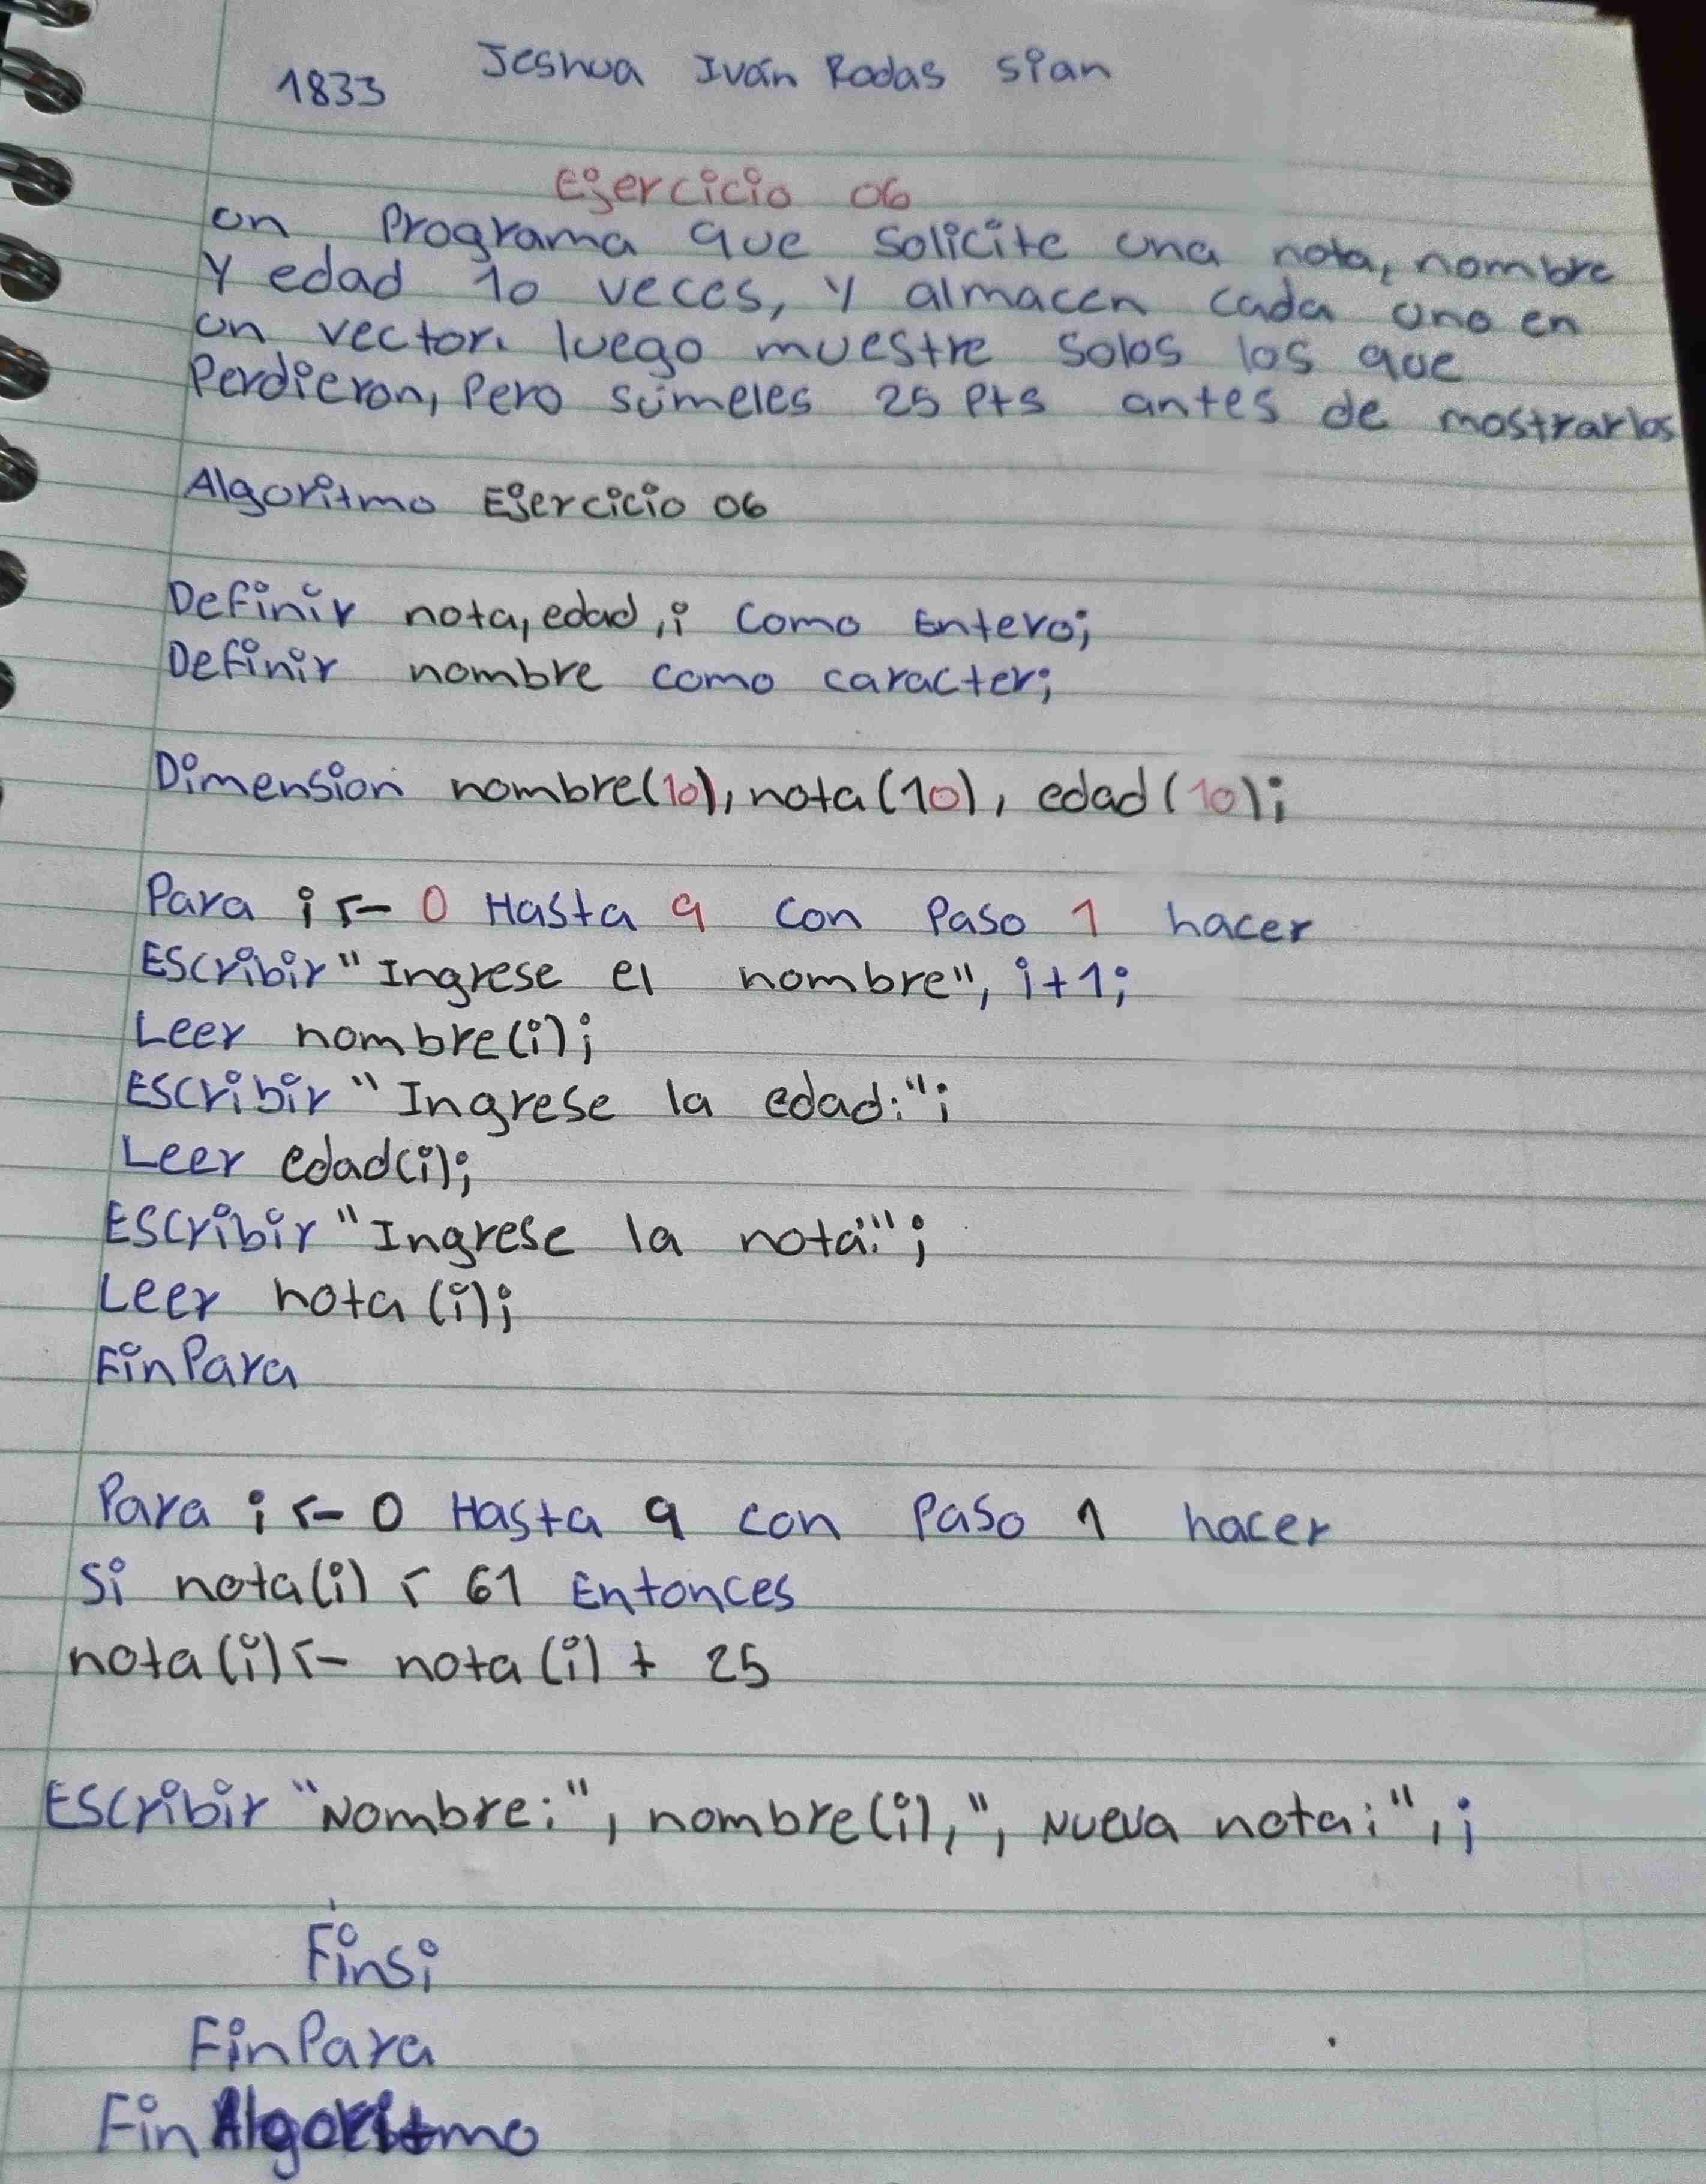 1833 Jeshua Iván Rodas Sian
Ejercicio 06
un Programa que solicite una nota, nombre
y edad 10 veces, y almacen cada uno en
un vector. luego muestre solos los que
Perdieron, Pero súmeles 25 Pts antes de mostrarlos
Algoritmo Ejercicio 06
Definir nota, edad, i como Entero;
Definir nombre como caracter;
Dimension nombre(10), nota(10), edad(10);
Para i <- 0 Hasta 9 con Paso 1 hacer
Escribir "Ingrese el nombre", i+1;
Leer nombre(i);
Escribir "Ingrese la edad:";
Leer edad(i);
Escribir "Ingrese la nota:";
Leer nota(i);
FinPara
Para i <- 0 Hasta 9 con Paso 1 hacer
Si nota(i) < 61 Entonces
nota(i) <- nota(i) + 25
Escribir "Nombre:", nombre(i), ", Nueva nota:", ;
Finsi
FinPara
Fin Algoritmo